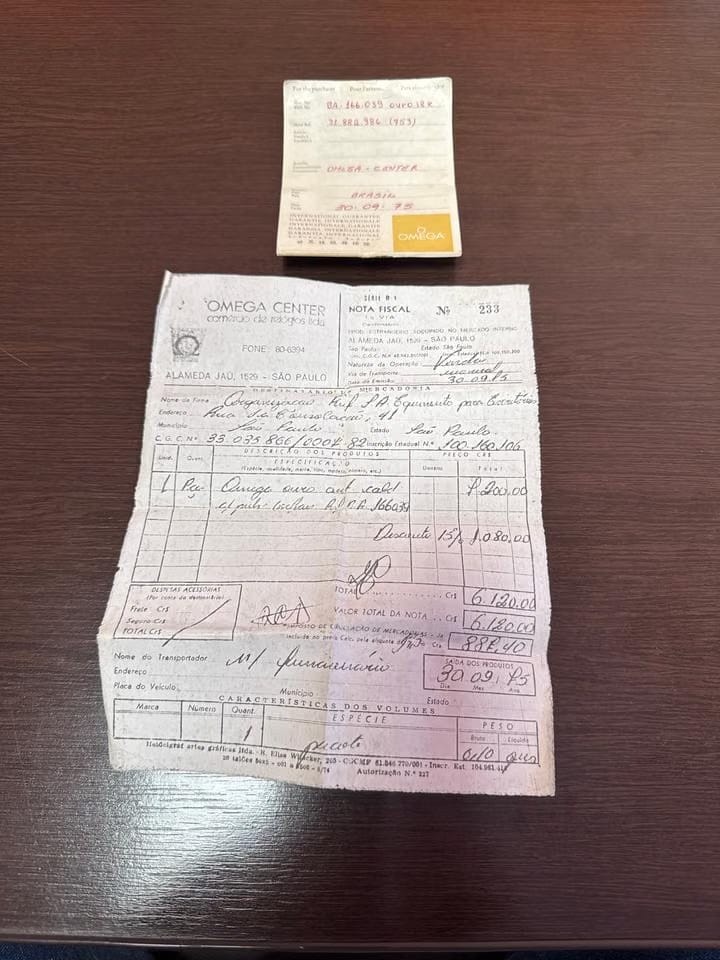 For the purchaser Pour l'acheteur
BA. 166.039 OURO 18 K
31.880.986 (753)
OMEGA - CENTER
BRASIL
30. 09. 75
INTERNATIONAL GUARANTEE
GARANTIE INTERNATIONALE
OMEGA
OMEGA CENTER
comércio de relógios ltda
FONE: 80-6394
ALAMEDA JAÚ, 1529 - SÃO PAULO
SÉRIE B-1
NOTA FISCAL Nº 233
1a. VIA
PROD. ESTRANGEIRO ADQUIRIDO NO MERCADO INTERNO
ALAMEDA JAÚ, 1529 - SÃO PAULO
São Paulo Estado São Paulo
Natureza da Operação: Venda
Via de Transporte manual
Data da Emissão: 30.09.75
DESTINATÁRIO DA MERCADORIA
Nome da Firma Organização Ruf S/A Equipamento para Escritórios
Endereço Rua da Consolação, 41
Município São Paulo Estado São Paulo.
C.G.C. Nº 33.035.866/0004-82 Inscrição Estadual N.º 100.160.106
Unid. Quant. DESCRIÇÃO DOS PRODUTOS PREÇO CR$
ESPECIFICAÇÃO
(Espécie, qualidade, marca, tipo, modelo, número, etc.) Unitário Total
1 Pça Omega ouro aut. cald 7.200.00
c/ puls. 166039
Desconto 15% 1.080.00
DESPESAS ACESSÓRIAS
(Por conta do destinatário)
Frete Cr$
Seguro Cr$
TOTAL Cr$
TOTAL Cr$ 6.120.00
VALOR TOTAL DA NOTA Cr$ 6.120.00
IMPOSTO DE CIRCULAÇÃO DE MERCADORIAS
Incluido no preço Calc. pela alíquota de Cr$ 887,40
Nome do Transportador
Endereço
Placa do Veículo: Município Estado
SAÍDA DOS PRODUTOS
30 09 75
Dia Mes Ano
CARACTERÍSTICAS DOS VOLUMES
Marca Número Quant. ESPÉCIE PESO
Bruto Líquido
1 pacote 0,10 grs
Heidelgraf artes gráficas ltda. - R. Elisa Whitacker, 265 - CGCMF 61.846.770/001 - Inscr. Est
Autorização N.º 227